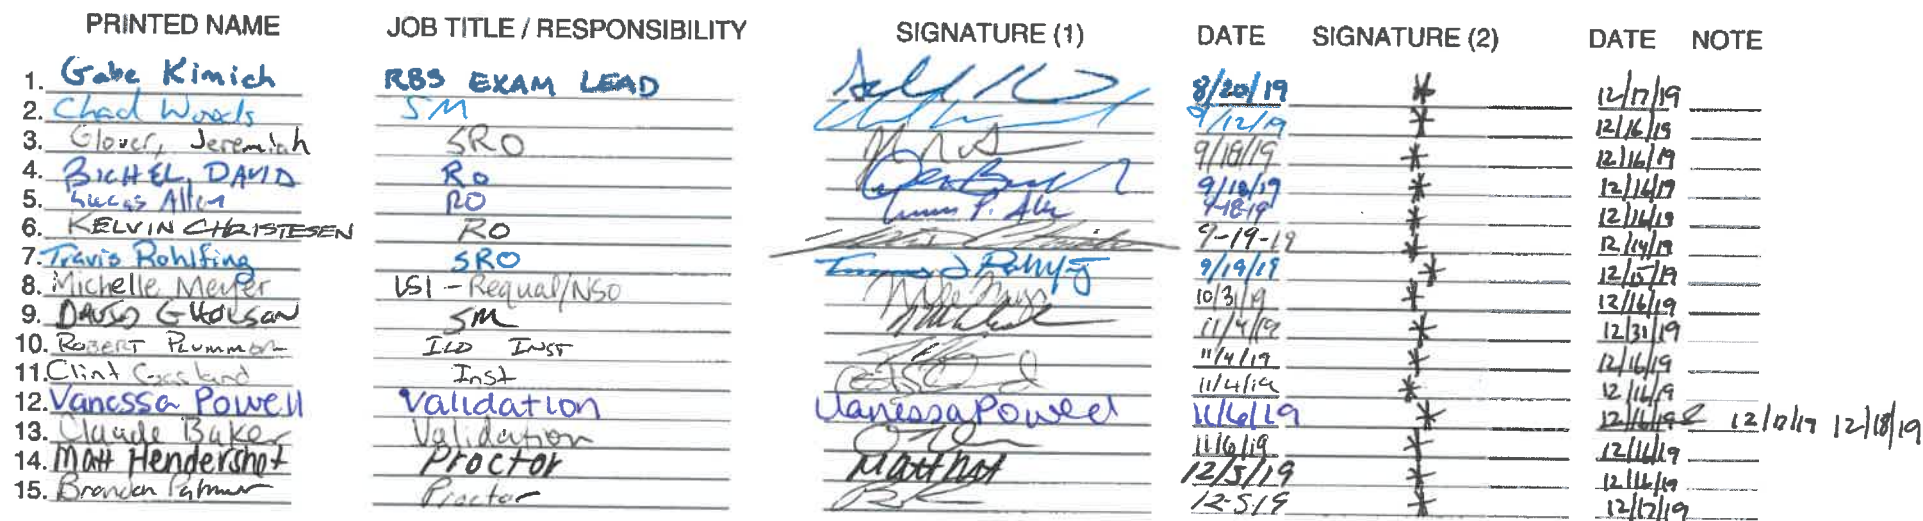 PRINTED NAME JOB TITLE / RESPONSIBILITY SIGNATURE (1) DATE SIGNATURE (2) DATE NOTE
1. Gabe Kimich RBS EXAM LEAD 8/20/19 * 12/17/19
2. Chad Woods SM 9/12/19 * 12/16/19
3. Glover, Jeremiah SRO 9/18/19 * 12/16/19
4. BICHEL, DAVID RO 9/18/19 * 12/16/19
5. Lucas Allen RO 9-18-19 * 12/16/19
6. KELVIN CHRISTESEN RO 9-19-19 * 12/14/19
7. Travis Rohlfing SRO 9/19/19 * 12/15/19
8. Michelle Meyer LSI - Requal/NSO 10/31/19 * 12/16/19
9. DAVID GHOLSON SM 11/4/19 * 12/31/19
10. ROBERT PLUMMER ILO INST 11/4/19 * 12/16/19
11. Clint Inst 11/4/19 * 12/16/19
12. Vanessa Powell Validation Vanessa Powell 11/6/19 * 12/16/19 12/17/19 12/18/19
13. Claude Baker Validation 11/6/19 * 12/16/19
14. Matt Hendershot Proctor 12/5/19 * 12/16/19
15. Branden Palmer Proctor 12-5-19 * 12/17/19